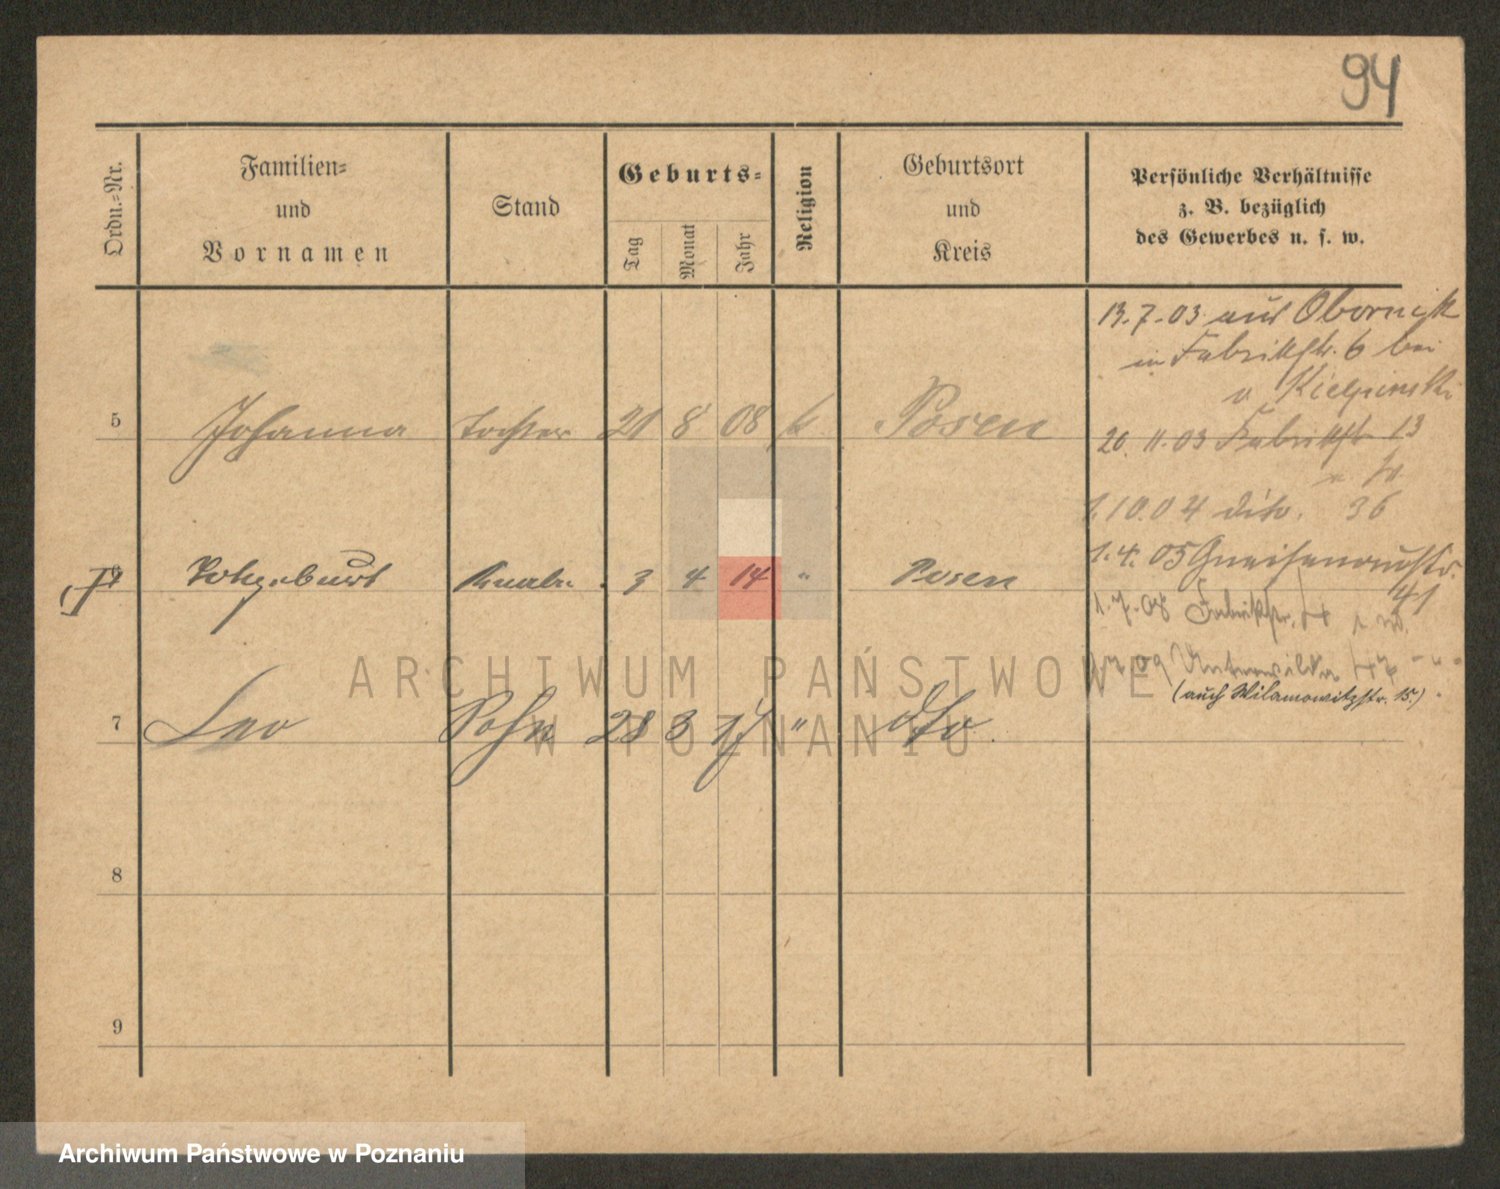 94
Ordn.-Nr.
Familien-
und
Vornamen
Stand
Geburts-
Tag
Monat
Jahr
Religion
Geburtsort
und
Kreis
Persönliche Verhältnisse
z. B. bezüglich
des Gewerbes u. s. w.
5 Johanna Tochter 21 8 08 k Posen
6 Totgeburt Knabe 3 4 14 " Posen
7 Leo Sohn 28 3 17 " dto
8
9
13.7.03 aus Obornik
in Fabrikstr. 6 bei
v Kielpinski
20.11.03 Fabrikstr 13
1.10.04 dito. 36
1.4.05 Gneisenaustr.
41
1.7.08 Fabrikstr.
09
(auch Wilamowitzstr. 15.)
ARCHIWUM PAŃSTWOWE
W POZNANIU
Archiwum Państwowe w Poznaniu